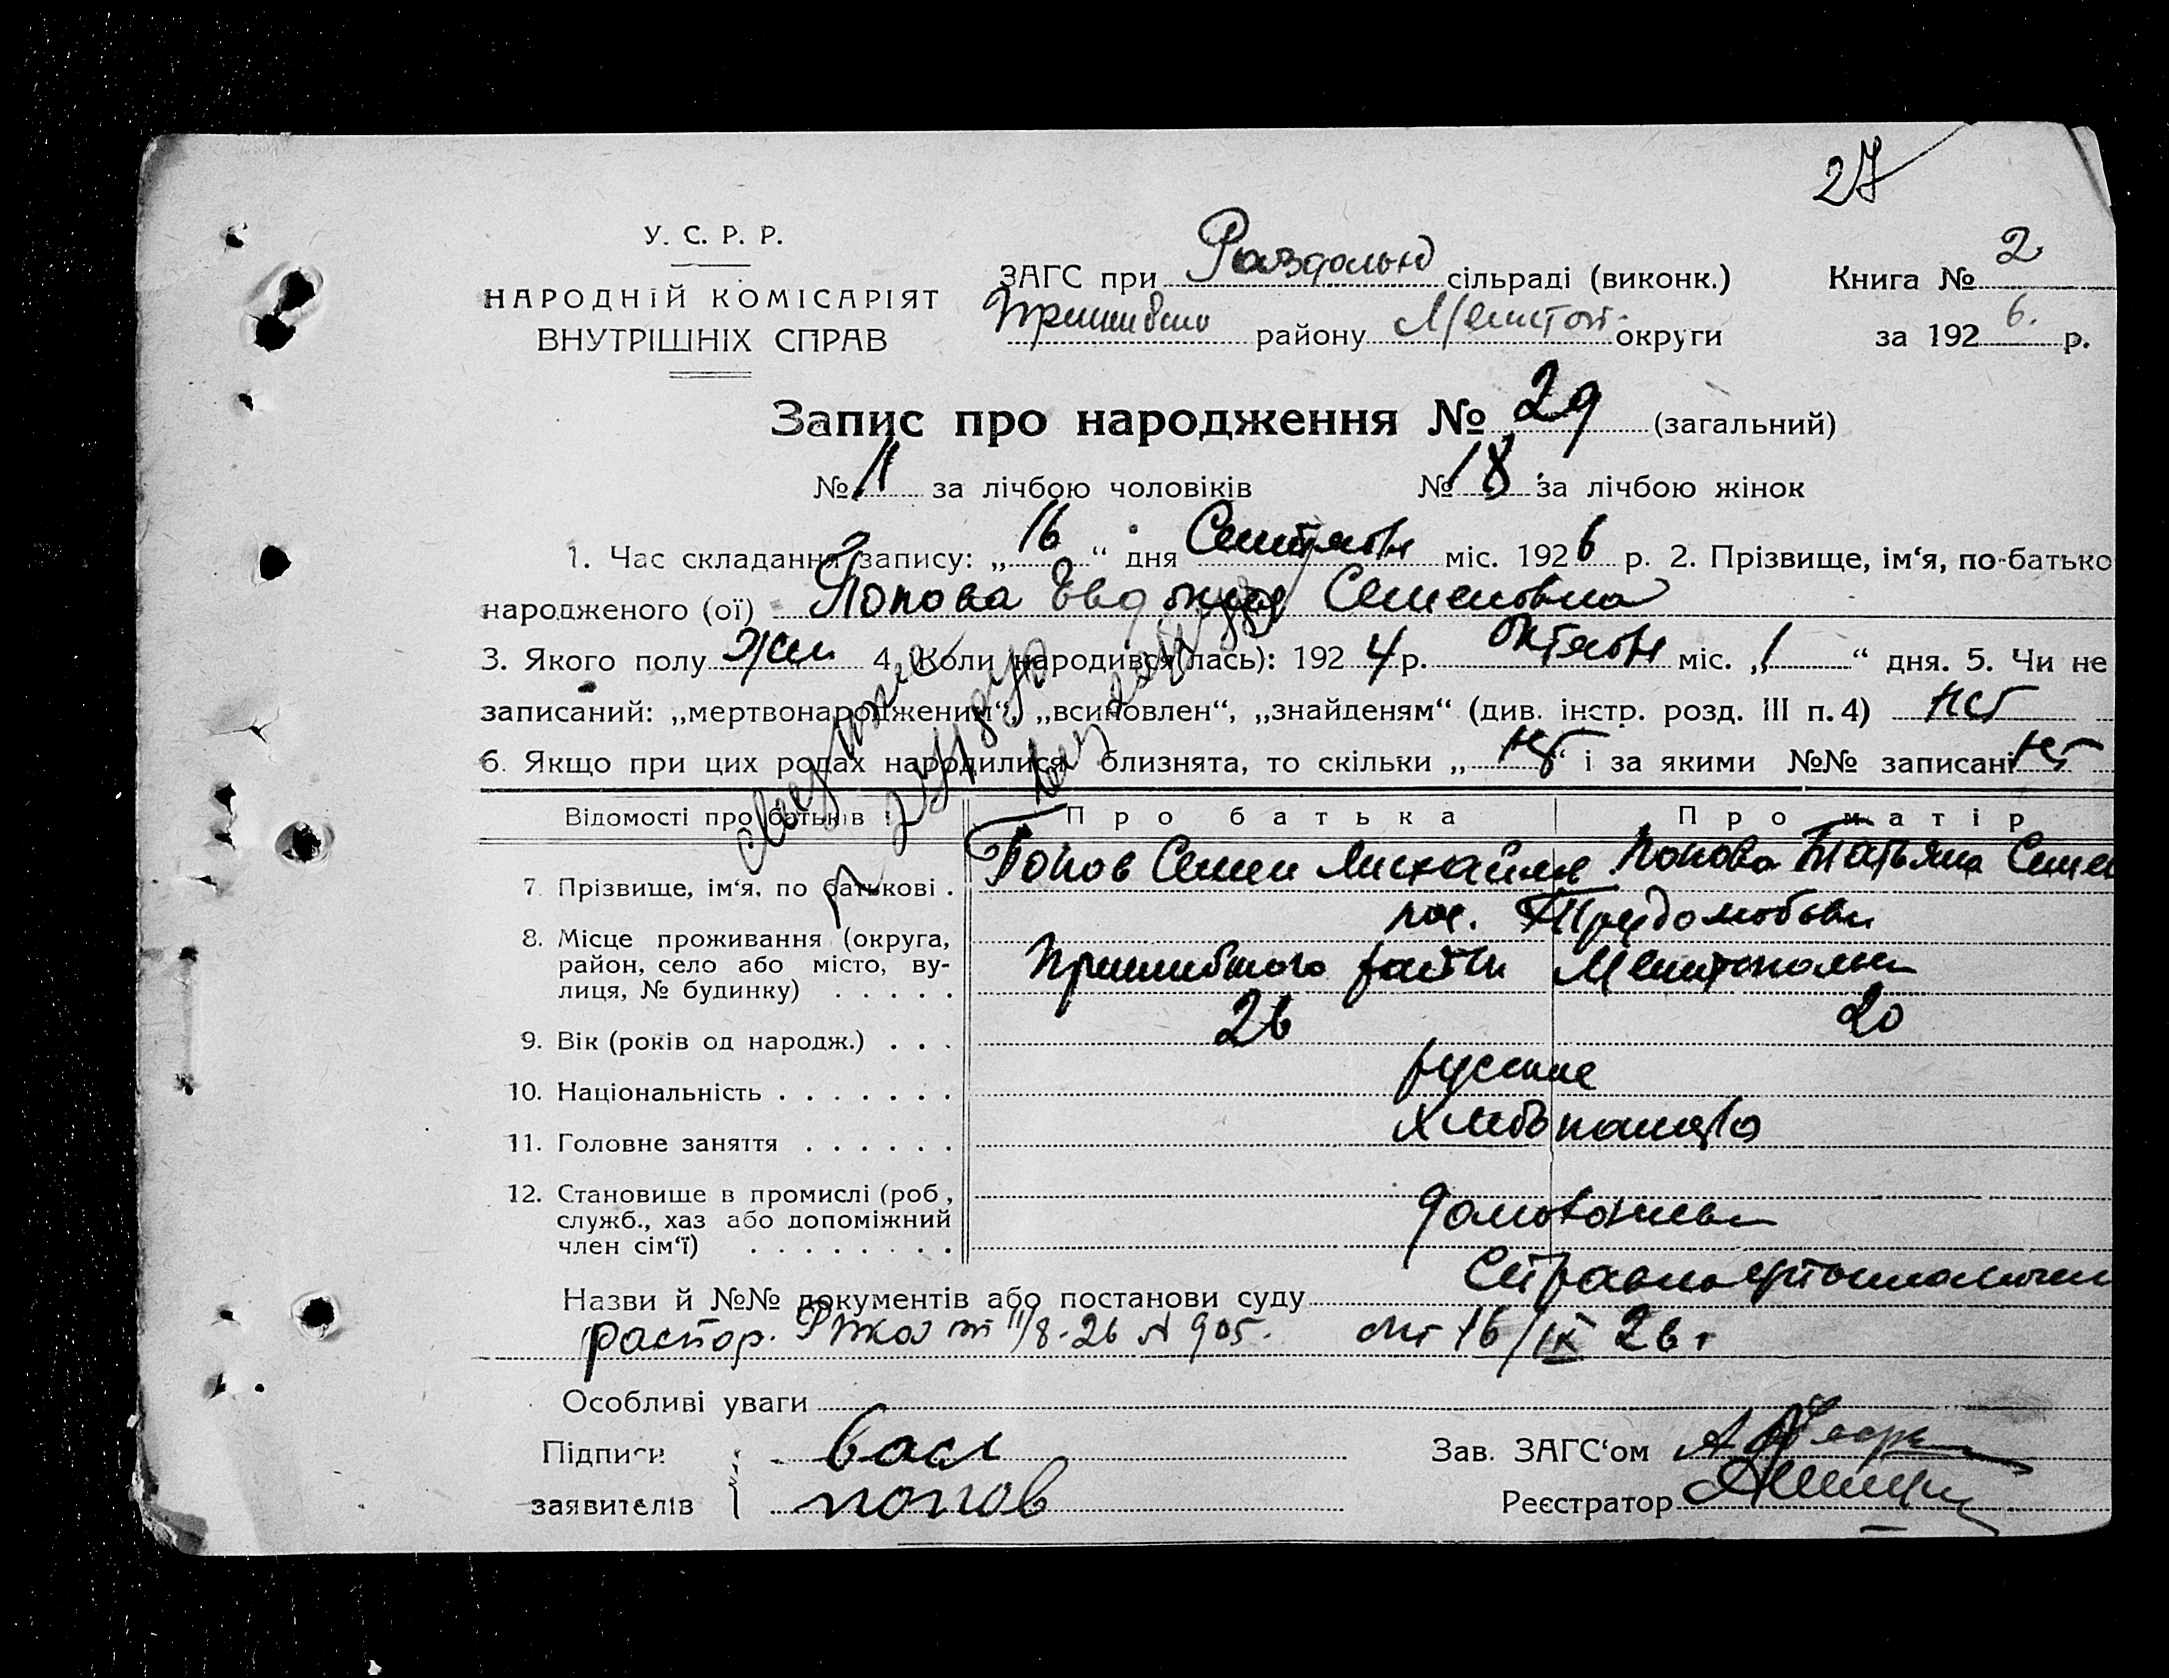 27
У. С. Р. Р.
НАРОДНІЙ КОМІСАРІЯТ
ВНУТРІШНІХ СПРАВ
ЗАГС при Раздольн сільраді (виконк.)
Пришибско району Мелитоп. округи
Книга № 2
за 1926. р.
Запис про народження № 29 (загальний)
№ 11 за лічбою чоловіків № 18 за лічбою жінок
1. Час складання запису: „16“ дня Сентября міс. 1926 р. 2. Прізвище, ім‘я, по-батько
народженого (ої) Попова Евдокия Семеновна
3. Якого полу жен 4. Коли народився(лась): 1924 р. Октября міс. „1“ дня. 5. Чи не
записаний: „мертвонародженим“, „всиновлен“, „знайденям“ (див. інстр. розд. III п. 4) нет
6. Якщо при цих родах народилися близнята, то скільки „нет“ і за якими №№ записані нет
Відомості про батьків : Про батька Про матір
7. Прізвище, ім‘я, по батькові . Попов Семен Михайлов Попова Татьяна Семен
8. Місце проживання (округа, район, село або місто, вулиця, № будинку) . . . . . пос. Трудолюбовк
Пришибского района Мелитопольск
9. Вік (років од народж.) . . . 26 20
10. Національність . . . . . . . русские
11. Головне заняття . . . . . . хлебопашество
12. Становище в промислі (роб , служб., хаз або допоміжний член сім‘ї) . . . . . . . . домохозяева
Назви й №№ документів або постанови суду Справка
распор. РИКа от 11/8-26 № 905. от 16/IX 26 г
Особливі уваги
Підписи
заявителів
попов
Зав. ЗАГС‘ом
Реєстратор